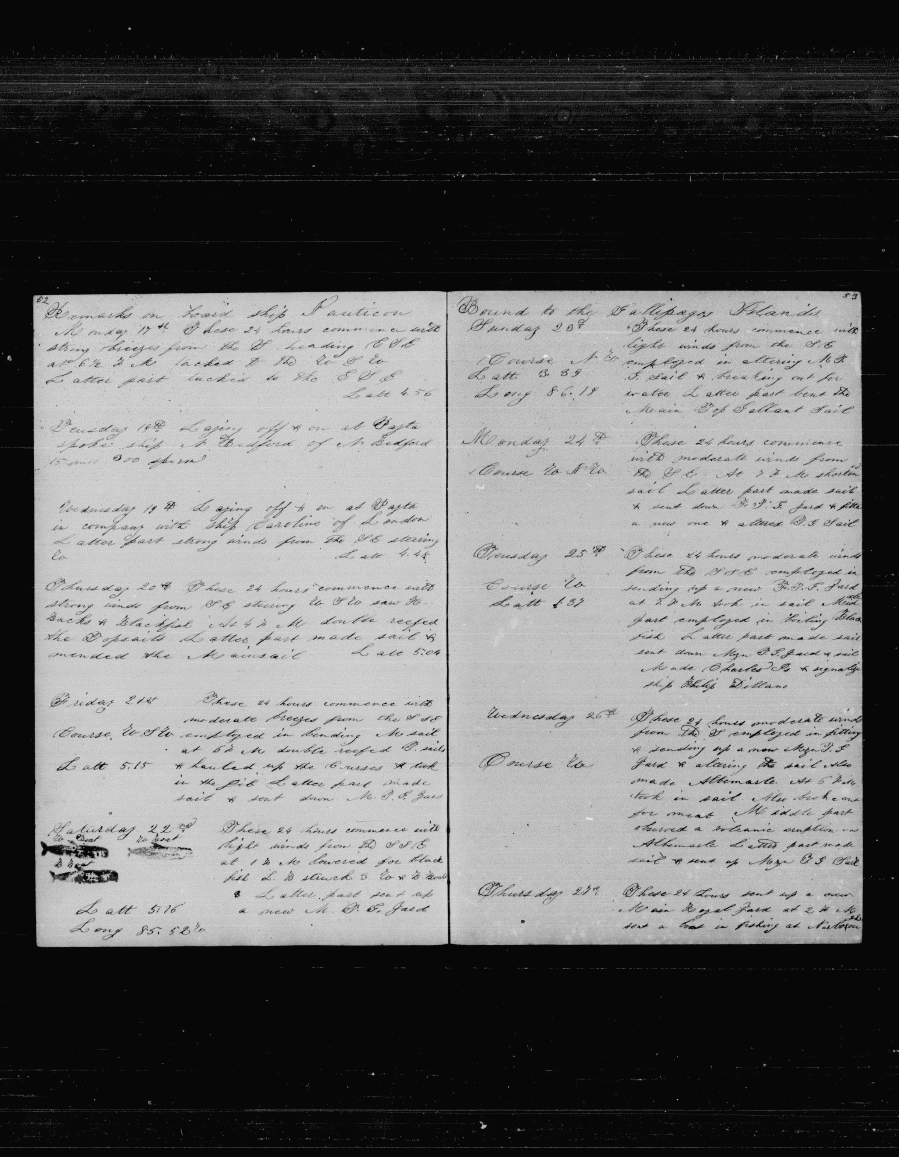 52
Remarks on board ship Nauticon
Monday 17th These 24 hours commence with
strong breezes from the S heading ESE
at 6½ P M tacked to the W S W
Latter part tacked to the E S E
Latt 4.56
Tuesday 18th Laying off & on at Payta
spoke ship N Bedford of N. Bedford
15 mos 300 sperm
Wednesday 19th Laying off & on at Payta
in company with ship Caroline of London
Latter part strong winds from the SE steering
W Latt 4.48
Thursday 20th These 24 hours commence with
strong winds from SE steering W S W saw
backs & blackfish At 4 P M double reefed
the Topsails Latter part made sail &
mended the Mainsail Latt 5.04
Friday 21st These 24 hours commence with
moderate breezes from the SSE
Course W S W employed in bending M sail
at 6 P M double reefed T. sails
Latt 5.15 & hauled up the Courses & took
in the Jib Latter part made
sail & sent down M. T. G. Yard
Saturday 22nd These 24 hours commence with
W Boat W Boat light winds from the SSE
at 1 P M lowered for black
fish L B struck W & B Boat
Latter part sent up
Latt 5.16 a new M T. G. Yard
Long 85.52 W
53
Bound to the Gallipagos Islands
Sunday 23d These 24 hours commence with
light winds from the S E
Course N W employed in altering M T.
Latt 3 39 G. Sail & breaking out for
Long 86.18 water Latter part bent the
Main Top Gallant Sail
Monday 24th These 24 hours commence
with moderate winds from
Course W N W the S E. At 7 P M shortened
sail Latter part made sail
& sent down F. T. G. Yard & fitted
a new one & altered T G Sail
Tuesday 25th These 24 hours moderate winds
from the SSE employed in
Course W sending up a new F. T. G. Yard
Latt 37 at P M took in sail Middle
part employed in boiling Black
fish Latter part made sail
sent down Mzn T. G. Yard & sail
Made Charles Is & signalize
ship Philip Dellano
Wednesday 26th These 24 hours moderate winds
from the S employed in fitting
& sending up a new Mzn T. G
Course W Yard & altering the sail Also
made Albemarle At 6 P M
took in sail Also broke out
for meat Middle part
observed a volcanic eruption on
Albemarle Latter part made
sail & sent up Mzn T G Sail
Thursday 27th These 24 hours sent up a new
Main Royal Yard at 2 P M
sent a boat in fishing at